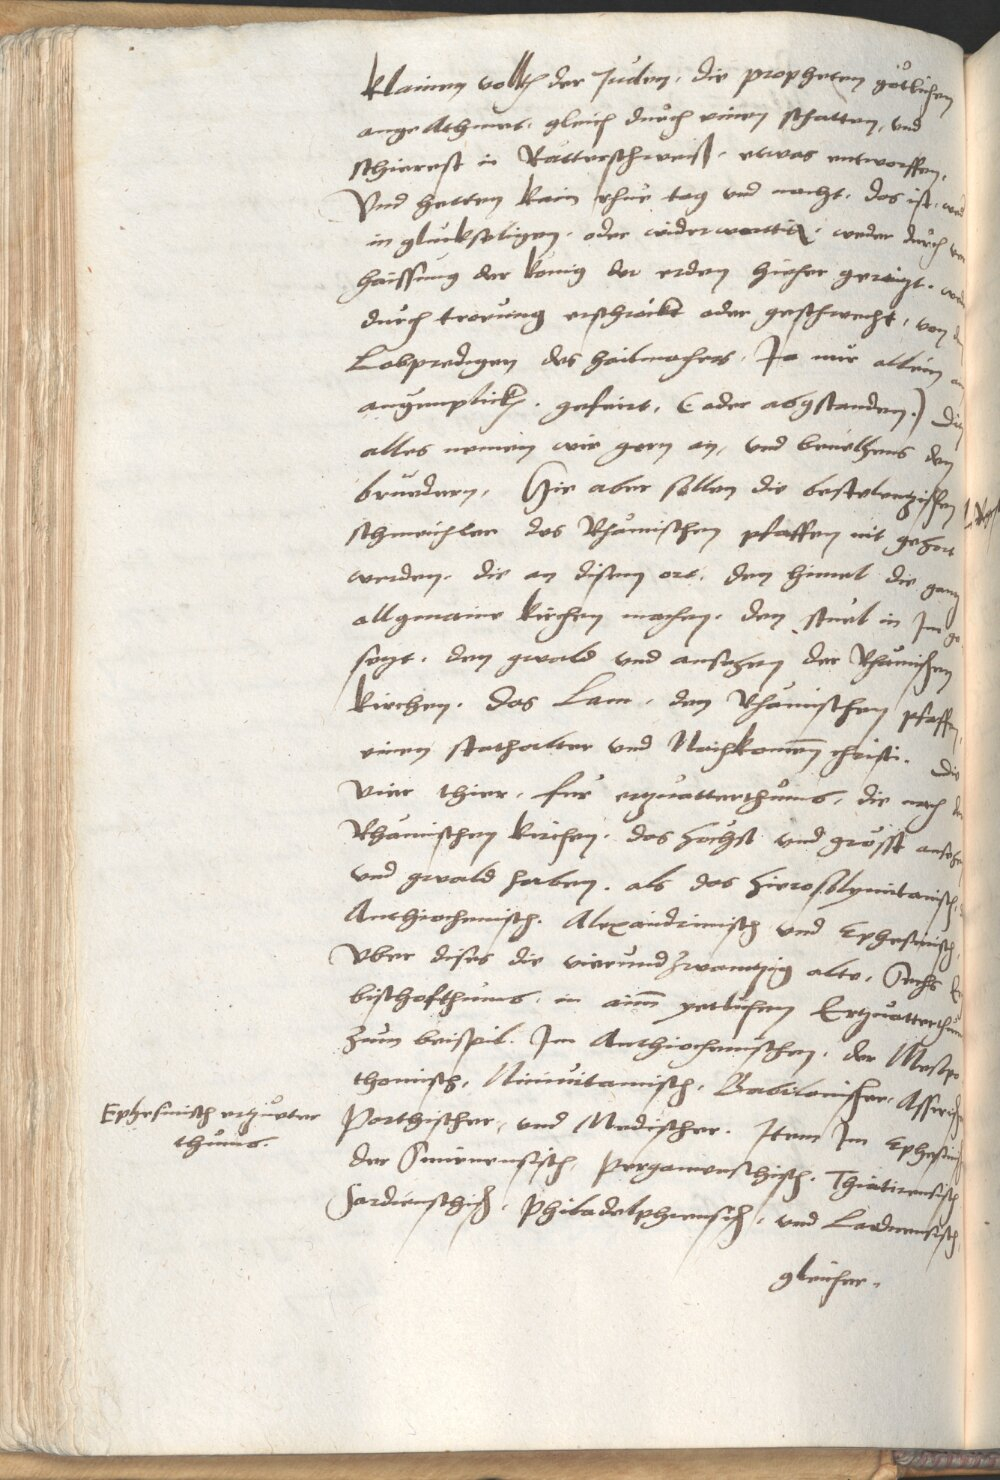 klainen vollkh der Juden. die propheten götlichen
angeAthmet. gleich durch einen schatten, vnd
schierest in Ratterschweiß. etwas entworffen,
Vnd hetten kain rhue tag vnd nacht. das ist.
in glukseligen. oder widerwerttig. weder durch
haissung der könig der erden hieher geraitzt.
durch troeung erschröckt oder geschwecht, von
Lobpredigen des hailmachers. Ja nur allein
augenplickh. gefeirt, (oder abgstanden.)
alles nemen wir gern an, vnd beuelhens den
bruedern, Hie aber sollen die bestelentzischen
schmeichler des Rhämischen pfaffen nit gehört
werden. die an disem ort, den himel die gantz
allgmaine kirchen machen. den stuel in Im
setzt. den gwald vnd ansehen der Rhämischen
kirchen. das Lam, den Rhämischen pfaffen,
einen stathalter vnd Nachkomen christi. die
vier thier, für ertzuatterthumb, die nach
Rhämischen kirchen. das höchst vnd gröst ansehen
vnd gwald haben. als das hierosolymitanisch,
Anthiochenisch. Alexandrinisch vnd Ephesinisch,
Vber dises die vierundzwantzig alte, Sechs
bischofthumb. in aim yetlichen Ertzuatterthum
zum beispil. Im Anthiochenischen. der Mesopo
thomisch, Niniuitanisch, Babilonischer, Assirisch
Parthischer, vnd Medischer. Item Im Ephesin
der Smirnensisch, Pergamenschisch, Thiatirensisch
Sardienschisch, Philadelphiensisch, vnd Laodicensisch
gleicher.
Ephesinisch ertzuater
thumb.